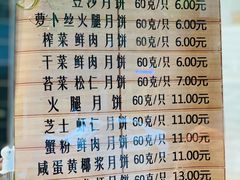 豆沙月饼 60克/只 6.00元
萝卜丝火腿月饼 60克/只 6.00元
榨菜鲜肉月饼 60克/只 6.00元
干菜鲜肉月饼 60克/只 6.00元
苔菜松仁月饼 60克/只 7.00元
火腿月饼 60克/只 11.00元
芝士虾仁月饼 60克/只 11.00元
蟹粉鲜肉月饼 60克/只 11.00元
咸蛋黄椰浆月饼 60克/只 13.00元